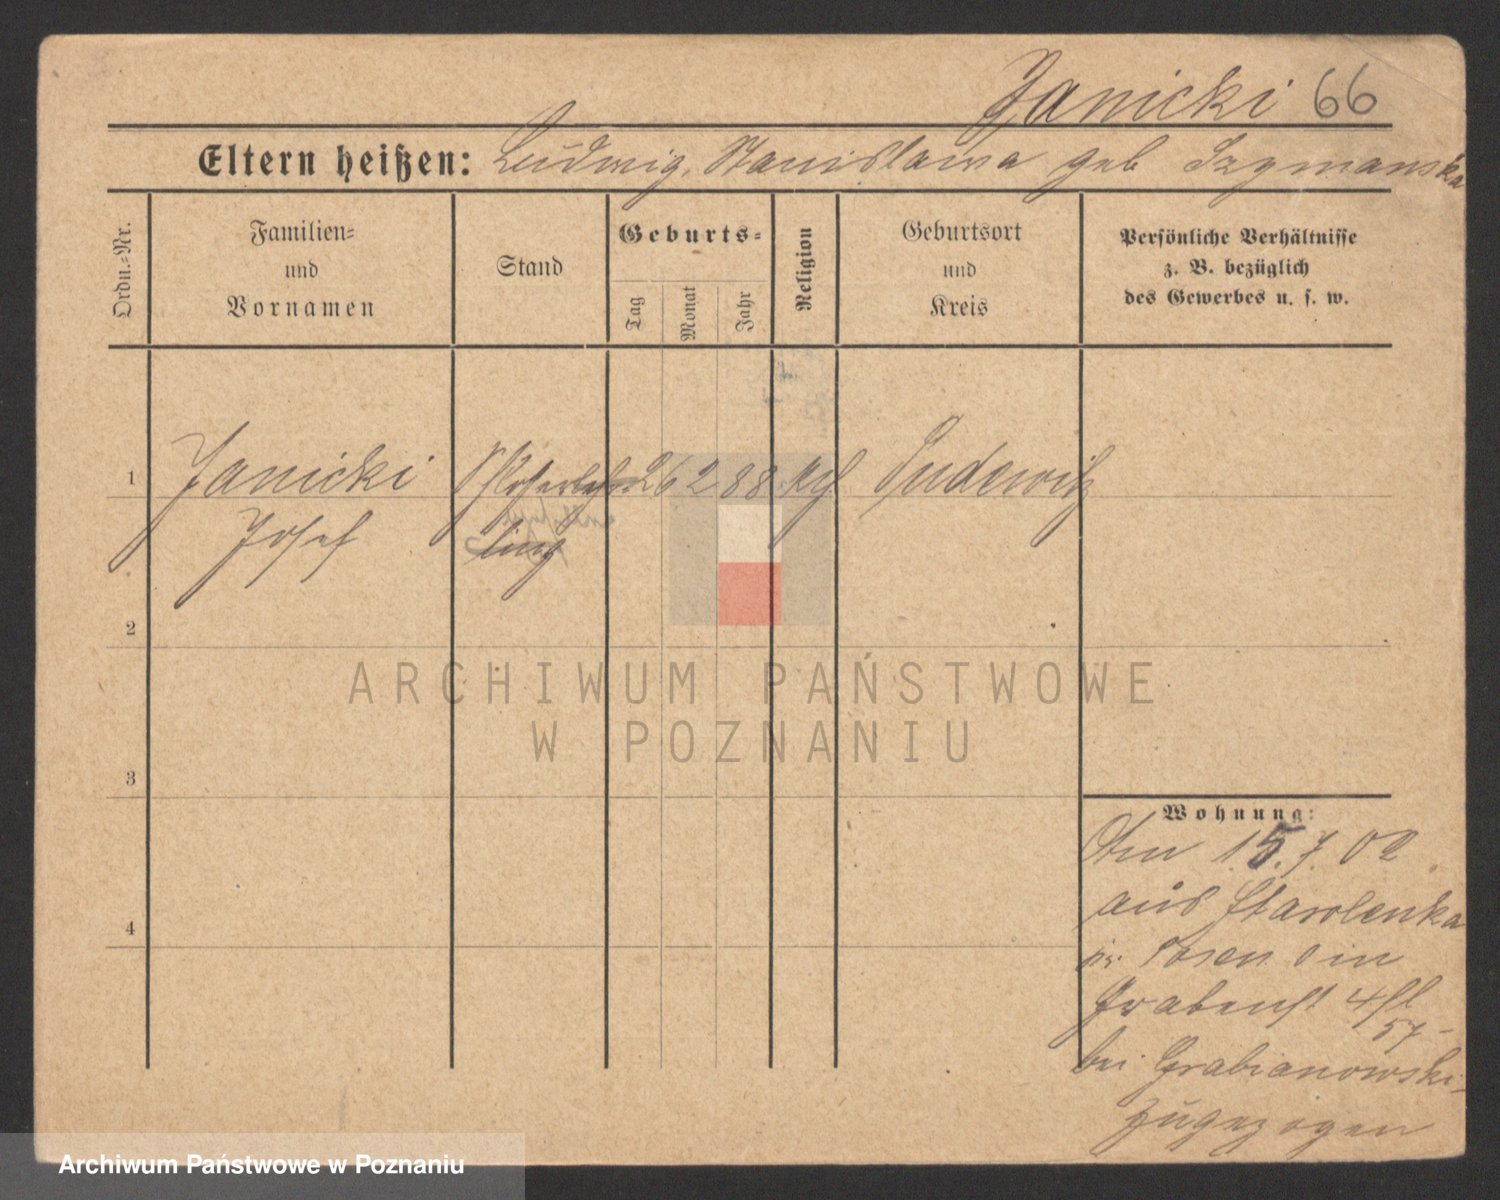 Janicki 66
Eltern heißen: Ludwig, Stanislawa geb Szymanska
Ordn.-Nr.
Familien-
und
Vornamen
Stand
Geburts-
Tag
Monat
Jahr
Religion
Geburtsort
und
Kreis
Persönliche Verhältnisse
z. B. bezüglich
des Gewerbes u. s. w.
1 Janicki Schlosserlehr 26 2 88 kth Pudewitz
Josef ling
2
ARCHIWUM PAŃSTWOWE
W POZNANIU
3
4
Wohnung:
Am 15.7.02
aus Starolenka
Posen in
Grabenst 4
bei Grabianowski
zugezogen
Archiwum Państwowe w Poznaniu